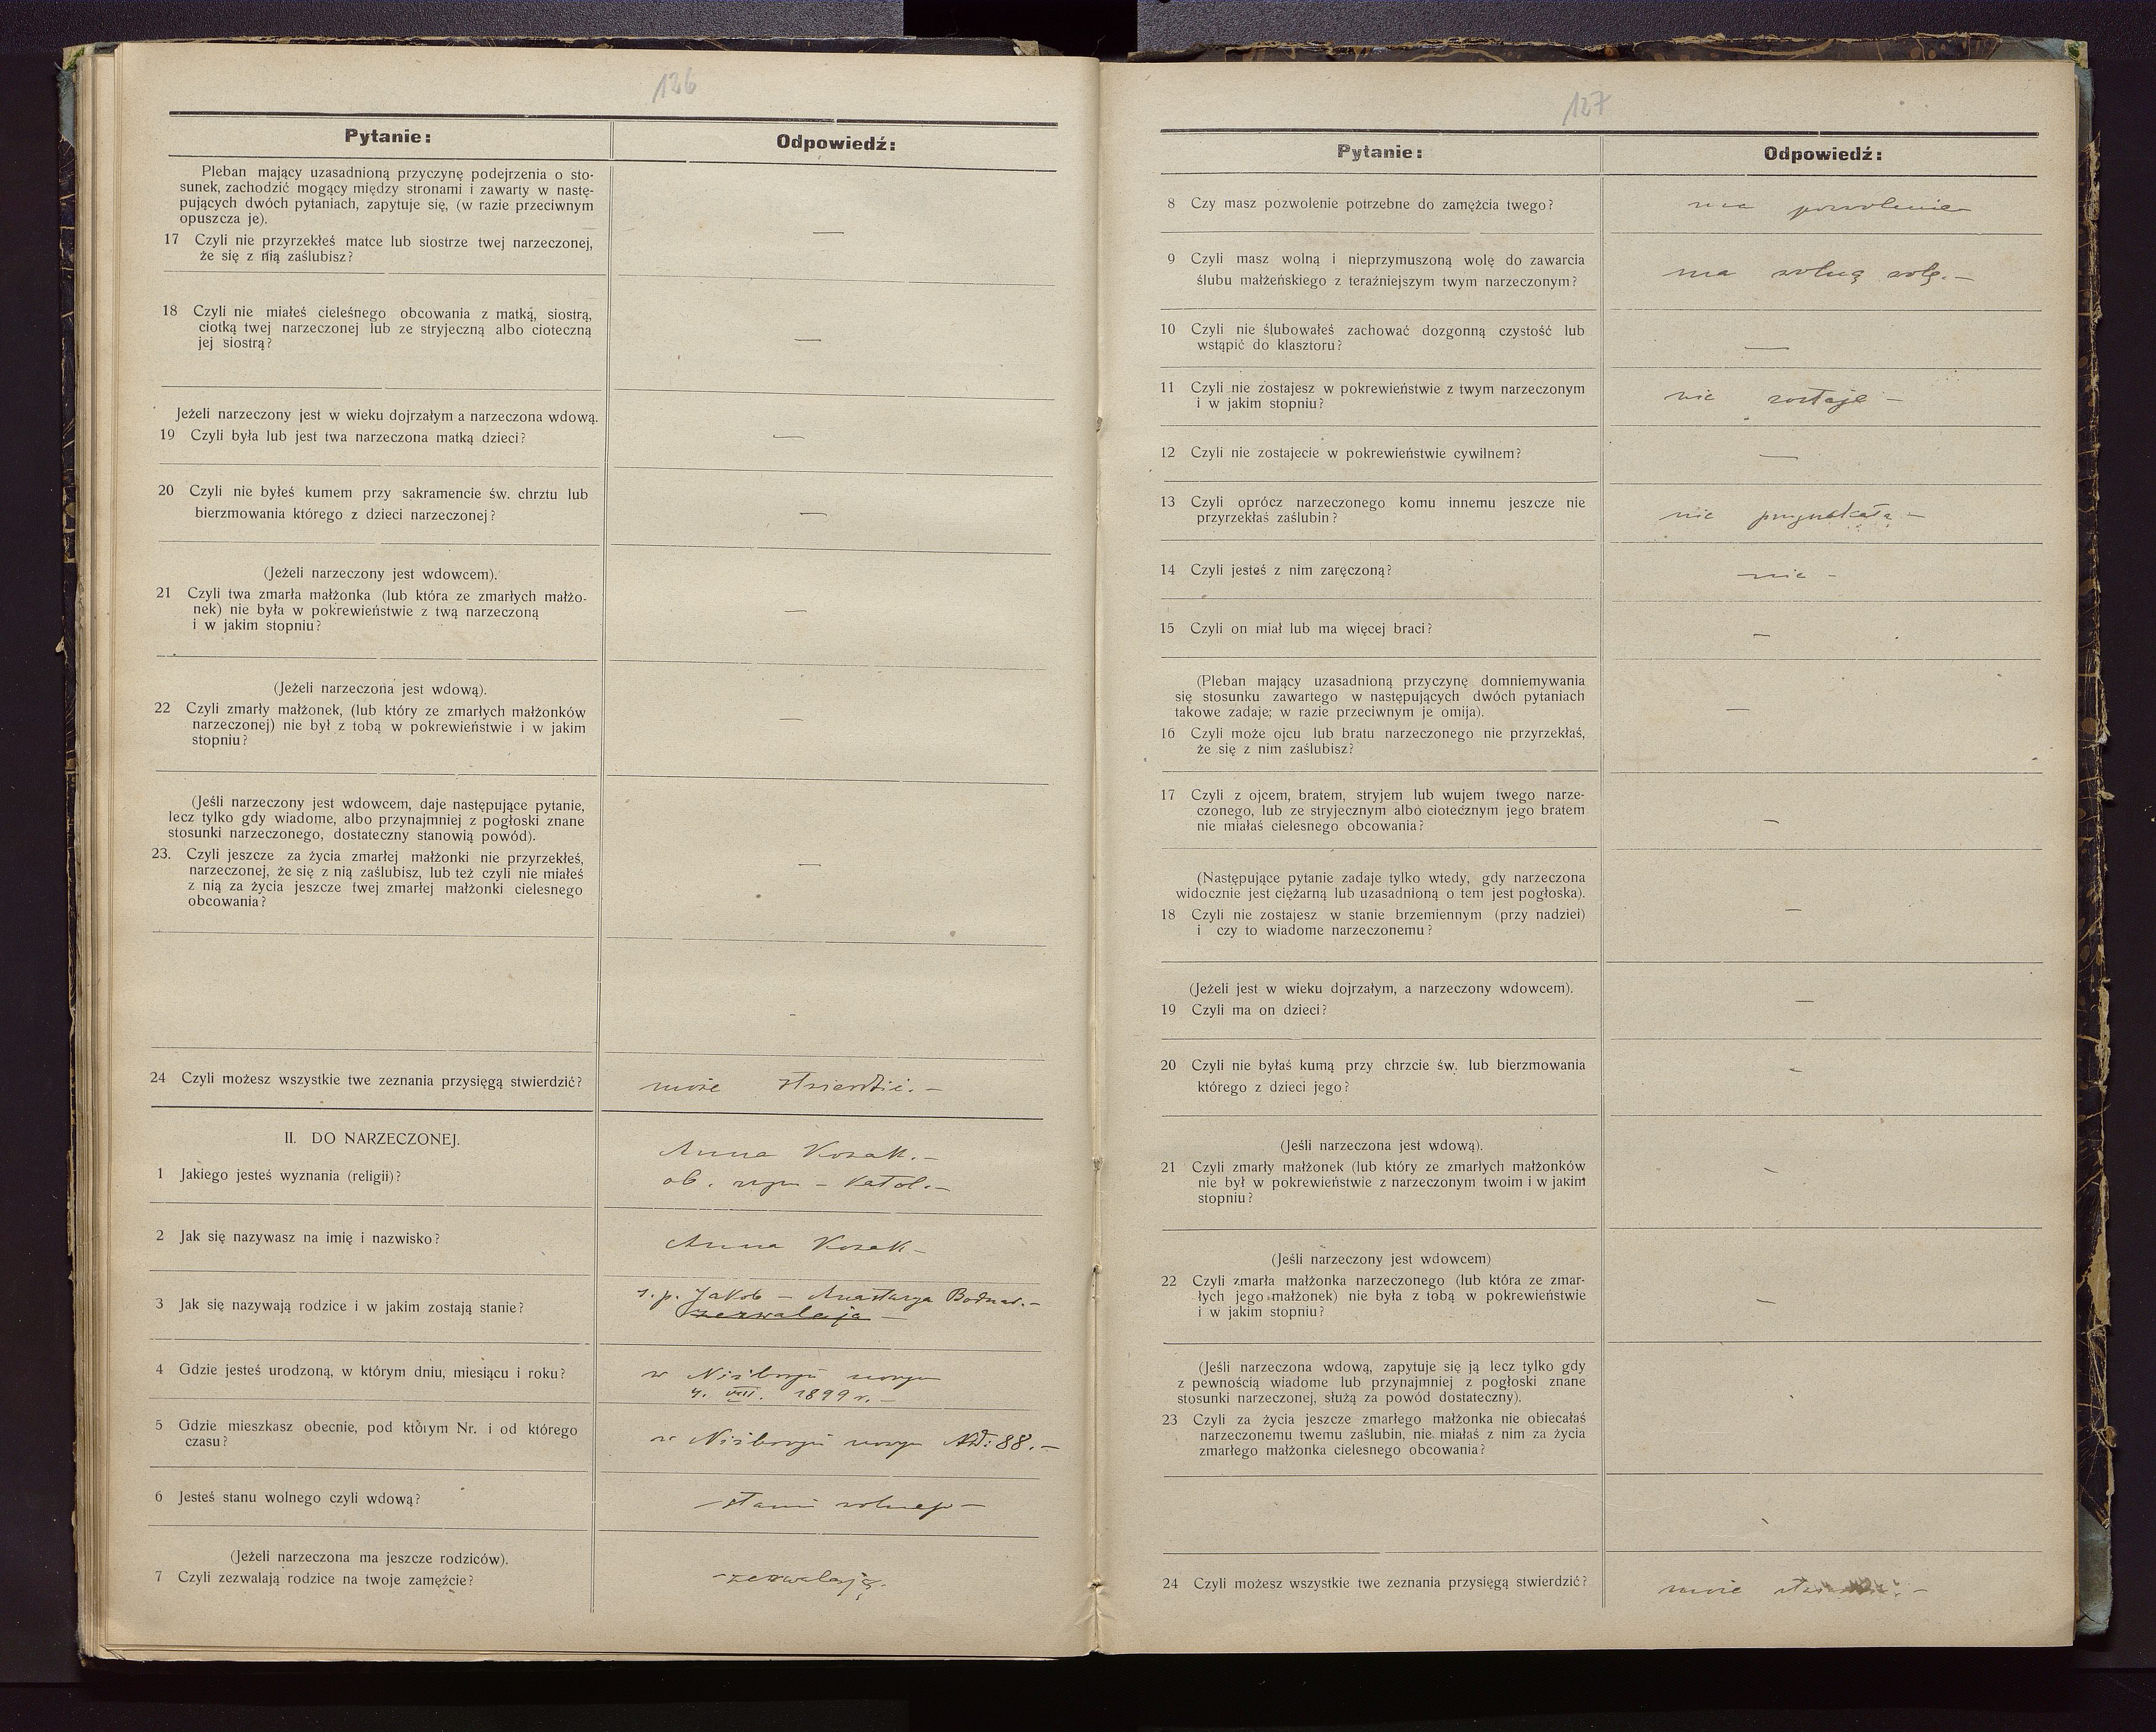 126
Pytanie:
Odpowiedź:
Pleban mający uzasadnioną przyczynę podejrzenia o sto-
sunek, zachodzić mogący między stronami i zawarty w nastę-
pujących dwóch pytaniach, zapytuje się, (w razie przeciwnym
opuszcza je).
17 Czyli nie przyrzekłeś matce lub siostrze twej narzeczonej,
że się z nią zaślubisz?
—
18 Czyli nie miałeś cieleśnego obcowania z matką, siostrą,
ciotką twej narzeczonej lub ze stryjeczną albo cioteczną
jej siostrą?
—
Jeżeli narzeczony jest w wieku dojrzałym a narzeczona wdową.
19 Czyli była lub jest twa narzeczona matką dzieci?
—
20 Czyli nie byłeś kumem przy sakramencie św. chrztu lub
bierzmowania którego z dzieci narzeczonej?
—
(Jeżeli narzeczony jest wdowcem).
21 Czyli twa zmarła małżonka (lub która ze zmarłych małżo-
nek) nie była w pokrewieństwie z twą narzeczoną
i w jakim stopniu?
—
(Jeżeli narzeczona jest wdową).
22 Czyli zmarły małżonek, (lub który ze zmarłych małżonków
narzeczonej) nie był z tobą w pokrewieństwie i w jakim
stopniu?
—
(Jeśli narzeczony jest wdowcem, daje następujące pytanie,
lecz tylko gdy wiadome, albo przynajmniej z pogłoski znane
stosunki narzeczonego, dostateczny stanowią powód).
23. Czyli jeszcze za życia zmarłej małżonki nie przyrzekłeś,
narzeczonej, że się z nią zaślubisz, lub też czyli nie miałeś
z nią za życia jeszcze twej zmarłej małżonki cielesnego
obcowania?
—
24 Czyli możesz wszystkie twe zeznania przysięgą stwierdzić?
może stwierdzić. —
II. DO NARZECZONEJ.
Anna Kozak. —
1 Jakiego jesteś wyznania (religii)?
ob. rzym – Katol. —
2 Jak się nazywasz na imię i nazwisko?
Anna Kozak —
3 Jak się nazywają rodzice i w jakim zostają stanie?
s. p. Jakób — Anastazya Bodnar. —
zezwalają —
4 Gdzie jesteś urodzoną, w którym dniu, miesiącu i roku?
w Niżborgu nowym
4. VIII. 1899 r. —
5 Gdzie mieszkasz obecnie, pod którym Nr. i od którego
czasu?
w Niżborgu nowym Nd: 88. —
6 Jesteś stanu wolnego czyli wdową?
stanu wolnego —
(Jeżeli narzeczona ma jeszcze rodziców).
7 Czyli zezwalają rodzice na twoje zamęźcie?
zezwalają.
127
Pytanie:
Odpowiedź:
8 Czy masz pozwolenie potrzebne do zamężcia twego?
ma pozwolenie
9 Czyli masz wolną i nieprzymuszoną wolę do zawarcia
ślubu małżeńskiego z teraźniejszym twym narzeczonym?
ma wolną wolę. —
10 Czyli nie ślubowałeś zachować dozgonną czystość lub
wstąpić do klasztoru?
—
11 Czyli nie zostajesz w pokrewieństwie z twym narzeczonym
i w jakim stopniu?
nie zostaje —
12 Czyli nie zostajecie w pokrewieństwie cywilnem?
—
13 Czyli oprócz narzeczonego komu innemu jeszcze nie
przyrzekłaś zaślubin?
nie przyrzekała —
14 Czyli jesteś z nim zaręczoną?
nie —
15 Czyli on miał lub ma więcej braci?
—
(Pleban mający uzasadnioną przyczynę domniemywania
się stosunku zawartego w następujących dwóch pytaniach
takowe zadaje; w razie przeciwnym je omija).
—
16 Czyli może ojcu lub bratu narzeczonego nie przyrzekłaś,
że się z nim zaślubisz?
17 Czyli z ojcem, bratem, stryjem lub wujem twego narze-
czonego, lub ze stryjecznym albo ciotecznym jego bratem
nie miałaś cielesnego obcowania?
—
(Następujące pytanie zadaje tylko wtedy, gdy narzeczona
widocznie jest ciężarną lub uzasadnioną o tem jest pogłoska).
18 Czyli nie zostajesz w stanie brzemiennym (przy nadziei)
i czy to wiadome narzeczonemu?
—
(Jeżeli jest w wieku dojrzałym, a narzeczony wdowcem).
19 Czyli ma on dzieci?
—
20 Czyli nie byłaś kumą przy chrzcie św. lub bierzmowania
którego z dzieci jego?
—
(Jeśli narzeczona jest wdową).
21 Czyli zmarły małżonek (lub który ze zmarłych małżonków
nie był w pokrewieństwie z narzeczonym twoim i w jakim
stopniu?
—
(Jeśli narzeczony jest wdowcem)
22 Czyli zmarła małżonka narzeczonego (lub która ze zmar-
łych jego małżonek) nie była z tobą w pokrewieństwie
i w jakim stopniu?
—
(Jeśli narzeczona wdową, zapytuje się ją lecz tylko gdy
z pewnością wiadome lub przynajmniej z pogłoski znane
stosunki narzeczonej, służą za powód dostateczny).
23 Czyli za życia jeszcze zmarłego małżonka nie obiecałaś
narzeczonemu twemu zaślubin, nie miałaś z nim za życia
zmarłego małżonka cielesnego obcowania?
24 Czyli możesz wszystkie twe zeznania przysięgą stwierdzić?
może